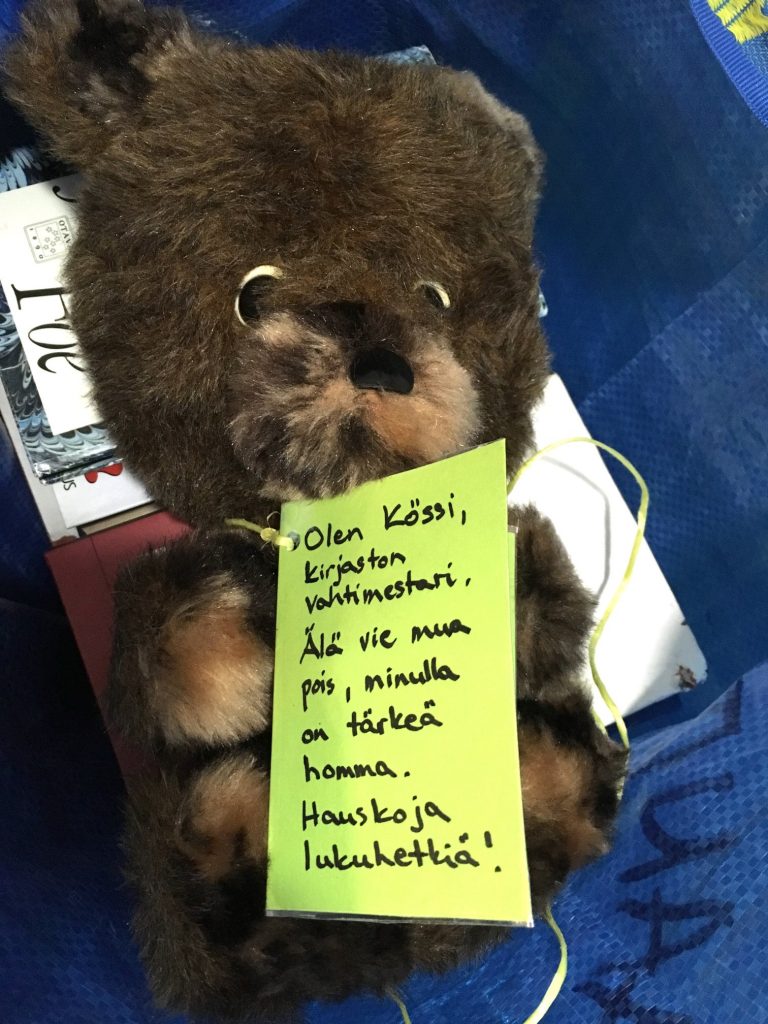 OTAVA
Olen Kössi,
kirjaston
vahtimestari.
Älä vie mua
pois, minulla
on tärkeä
homma.
Hauskoja
lukuhetkiä!